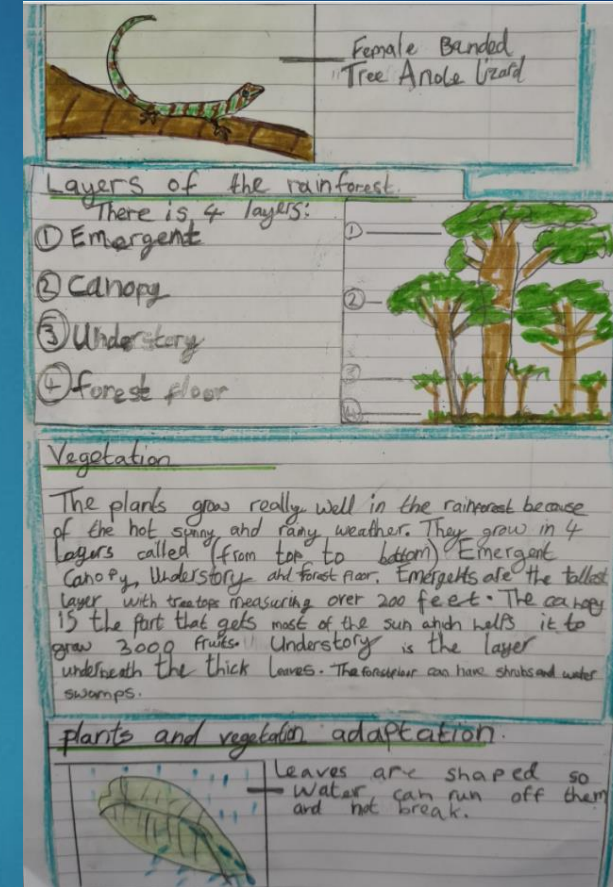 Female Banded
Tree Anole Lizard
Layers of the rainforest.
There is 4 layers:
① Emergent
② Canopy
③ Understory
④ forest floor
①
②
③
④
Vegetation
The plants grow really well in the rainforest because
of the hot sunny and rainy weather. They grow in 4
Layers called (from top to bottom) Emergent
Canopy, Understory and forest floor. Emergents are the tallest
layer with treetops measuring over 200 feet. The canopy
is the part that gets most of the sun and helps it to
grow 3000 fruits. Understory is the layer
underneath the thick leaves. The can have shrubs and water
swamps.
plants and vegetation adaptation.
Leaves are shaped so
water can run off them
and not break.